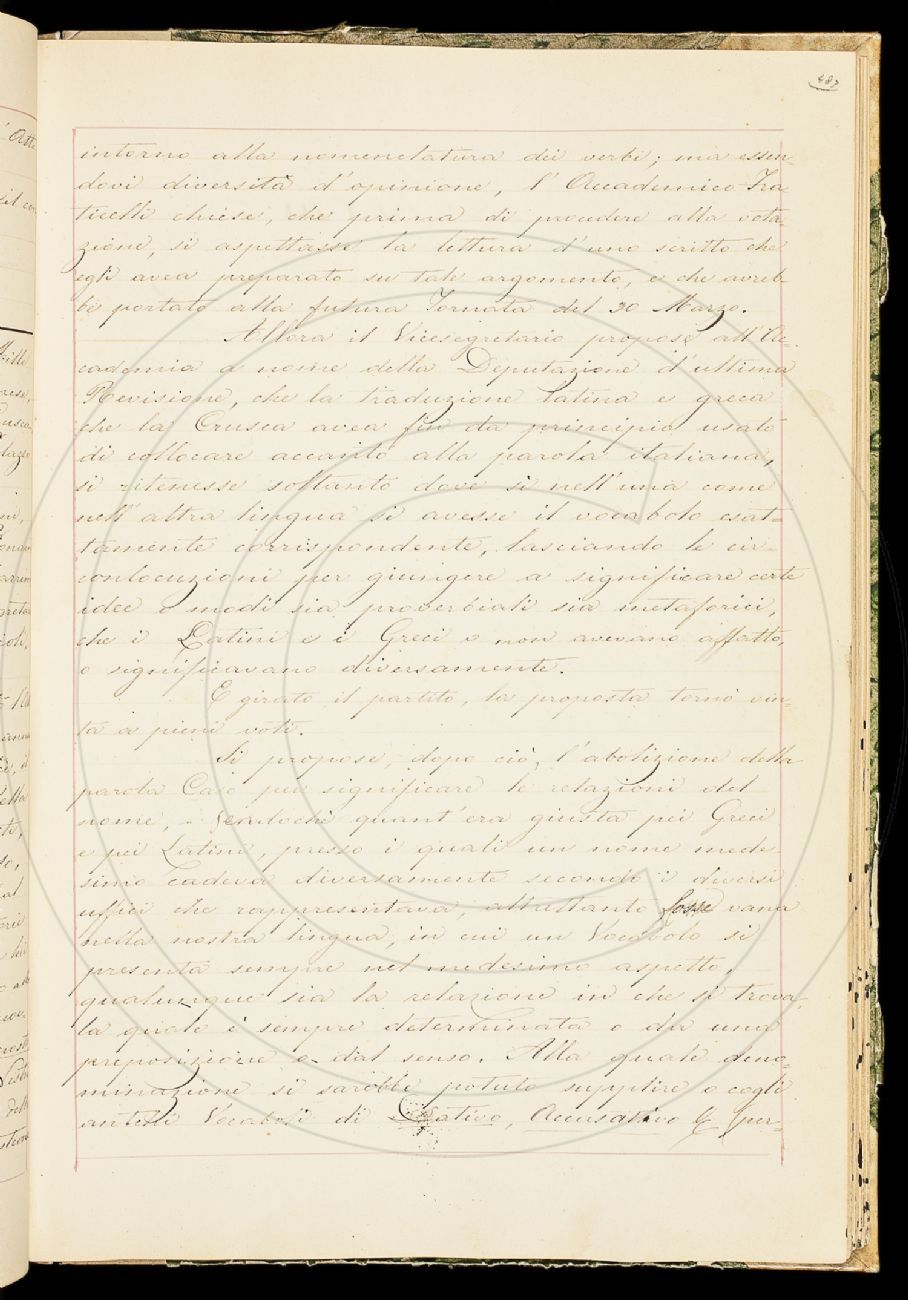 487
intorno alla nomenclatura dei verbi; ma essen-
dovi diversità d'opinione, l'Accademico Fra-
ticelli chiese, che prima di procedere alla vota-
zione, si aspettasse la lettura d'uno scritto che
egli avea preparato su tale argomento, e che avreb-
be portato alla futura Tornata del 30 Marzo.
Allora il Vicesegretario propose all'Ac-
cademia a nome della Deputazione d'ultima
Revisione, che la traduzione latina e greca
che la Crusca avea fin da principio usato
di collocare accanto alla parola italiana,
si ritenesse soltanto dove sì nell'una come
nell'altra lingua si avesse il vocabolo esat-
tamente corrispondente, lasciando le cir-
conlocuzioni per giungere a significare certe
idee o modi sia proverbiali sia metaforici,
che i Latini e i Greci o non avevano affatto,
o significavano diversamente.
E girato il partito, la proposta tornò vin-
ta a pieni voti.
Si propose, dopo ciò, l'abolizione della
parola Caso per significare le relazioni del
nome, sendochè quant'era giusta pei Greci
e pei Latini, presso i quali un nome mede-
simo cadeva diversamente secondo i diversi
uffici che rappresentava, altrettanto fosse vana
nella nostra lingua, in cui un Vocabolo si
presenta sempre nel medesimo aspetto,
qualunque sia la relazione in che si trova,
la quale è sempre determinata o da una
preposizione o dal senso. Alla quale deno-
minazione si sarebbe potuto supplire o cogli
antichi Vocaboli di Dativo, Accusativo &c per-